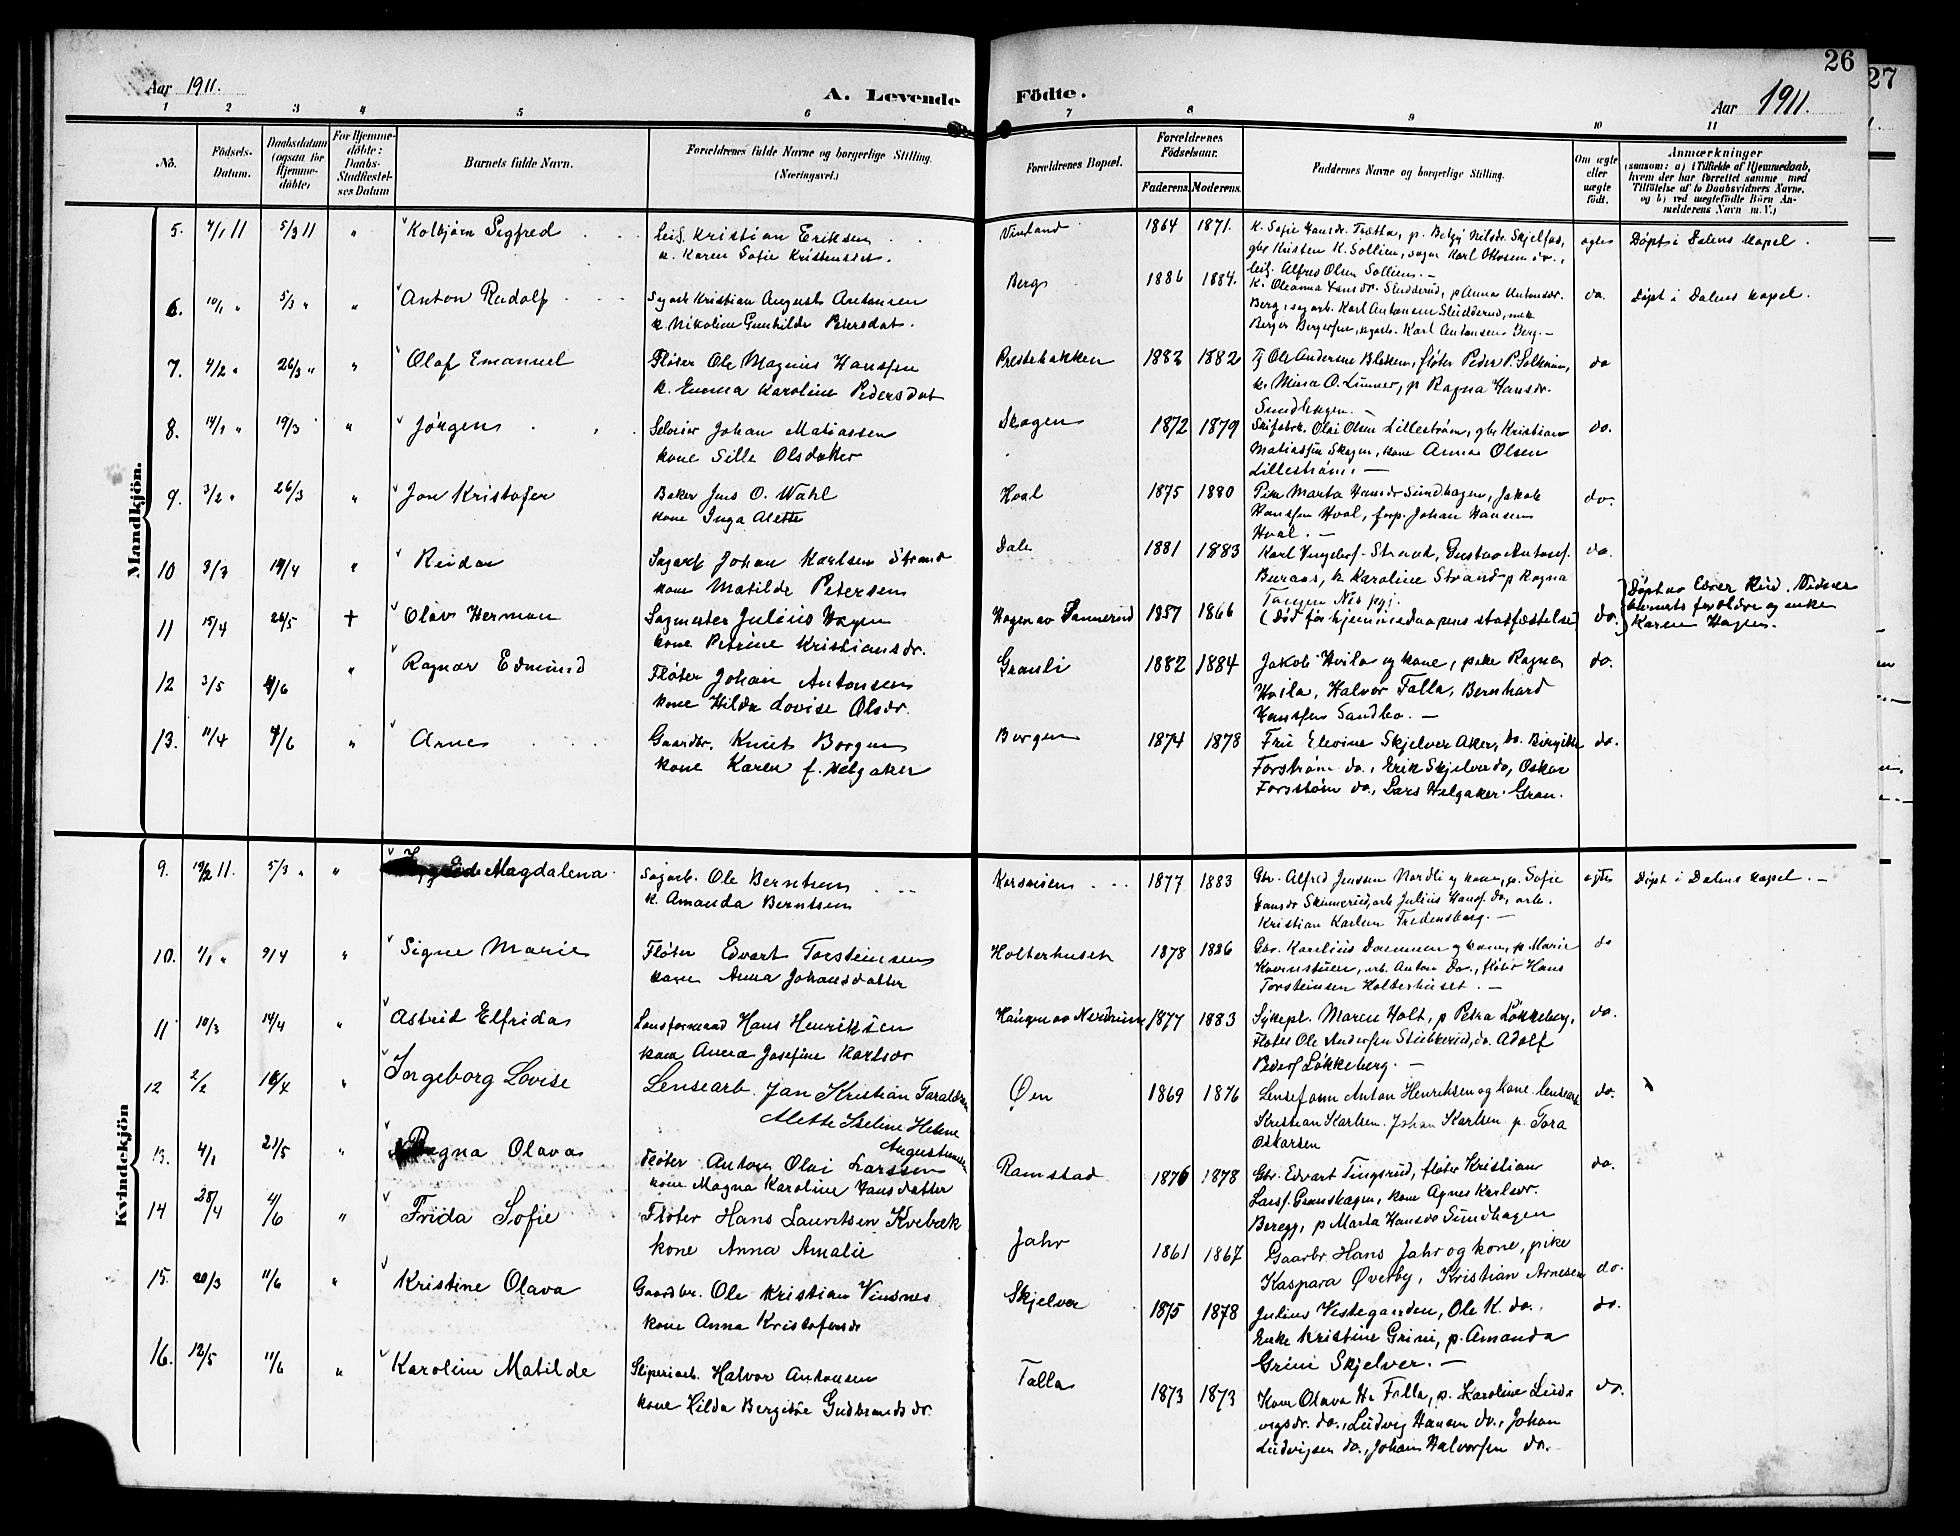 26
27
Aar 1911.
A. Levende Födte.
Aar 1911.
1 2 3 4 5 6 7 8 9 10 11
Nö.
Födsels-Datum.
Daabsdatum (ogsaa for Hjemmedöbte)
For Hjemmedöbte: Daabs-Stadfæstelses Datum
Barnets fulde Navn.
Forældrenes fulde Navne og borgerlige Stilling.
(Næringsvei.)
Forældrenes Bopæl.
Forældrenes Födselsaar.
Faderens. Moderens.
Faddernes Navne og borgerlige Stilling.
Om ægte eller uægte födt.
Anmærkninger
(saasom: a) i Tilfælde af Hjemmedaab, hvem der har forrettet samme med Tilföielse af to Daabsvidners Navne, og b) ved uægtefödte Börn Anmelderens Navn m. V.)
Mandkjön.
5. 7/1 11 5/3 11 " Kolbjørn Sigfred
Leil. Kristian Eriksen
k. Karen Sofie Kristensdt.
Vinland 1864 1871.
K. Sofie Hansdr. Trætta, p. Betzy Nilsdr. Skjelfos,
gbr Kristen K. Sollien, Karl Ottosen do.,
leil. Alfred Olsen Sollien. —
ægte Døpt i Dalens kapel.
6. 10/1 " 5/3 " " Anton Rudolf
Sagarb Kristian August Antonsen
k. Nikoline Gunhilde Petersdat.
Berg 1886 1884.
K. Oleanna Hansdr. Sludderud, p Anna Antonsdr.
Berg, sagarb. Karl Antonsen Sludderud,
Berger Bergersen, sagarb. Karl Antonsen Berg. —
do. Døpt i Dalens kapel.
7. 4/2 " 26/3 " " Olaf Emanuel
Fløter Ole Magnus Hansen
k. Emma Karoline Pedersdat
Prestebakken 1883 1882
Tj Ole Andersen Blekem, fløter Peder P. Solheim,
k. Mina O. Linner, p Ragna Hansdr.
Sundhagen. —
do
8. 14/1 " 19/3 " Jørgen
Seleier Johan Matiassen
kone Sille Olsdatter
Skogen 1872 1879
Skifabrk. Olai Olsen Lillestrøm, gbr Kristian
Matiassen Skogen, kone Anna Olsen
Lillestrøm. —
do.
9. 3/2 " 26/3 " Jon Kristofer
Baker Jens O. Wahl
kone Inga Alette
Hval 1875 1880
Pike Marta Hansdr Sundhagen, Jakob
Hanssen Hval, forp. Johan Hansen
Hval. —
do.
10 3/3 19/4 " Reidar
Sagarb Johan Karlsen Strand
kone Matilde Petersen
Dale 1881 1883
Karl Strand, Gustav Antonsf.
Buraas, k Karoline Strand p Ragna
Tangen Nes pgj.
do.
11 15/4 28/5 + Olav Herman
Sagmester Julius Hagen
kone Petrine Kristiansdr.
Hagen av Sannerud 1857 1866
(Død før hjemmedaapens stadfæstelse)
do.
Døpt av lærer Rud. Vidner
barnets forældre og enke
Karen Hagen.
12 3/5 4/6 " Ragnar Edmund
Fløter Johan Antonsen
kone Hilda Lovise Olsdr.
Granli 1882 1884
Jakob Hvila og kone, pike Ragna
Hvila, Halvor Falla, Bernhard
Hanssen Sandbo. —
do.
13. 11/4 4/6 " Arne
Gaardbr. Knut Borgen
kone Karen f. Helgaker
Borgen 1874 1878
Fru Elevine Skjelver Aker, do. Birgithe
Forstrøm do., Erik Skjelver do, Oskar
Forsstøm do., Lars Helgaker Gran.
do.
Kvindekjön
9. 19/2 11. 5/3 " " Magdalena
Sagarb. Ole Berntsen
k. Amanda Berntsen
Korsmoen 1877 1883
Gbr. Alfred Jenssen Nordli og kone, p. Sofie
Hansdr Skinnerud, arb Julius Hansf. do, arb.
Kristian Karlsen Fredensborg. —
ægte Døpt i Dalens kapel. —
10. 1/1 " 9/4 " Signe Marie
Fløter Edvart Torsteinsen
kone Anna Johansdatter
Holterhuset 1878 1886
Gbr. Karelius Dammen og kone, p. Marie
Kvernstuen, arb. Anton do., fløter Hans
Torsteinsen Holterhuset. —
do
11 10/3 14/4 " Astrid Elfrida
Lensformand Hans Henriksen
kone Anna Josefine Karlsdr
Haugen av Nerdrum 1877 1883
Sykepl. Maren Holt, p Petra Løkkeberg,
Fløter Ole Andersen Stubberud, do. Adolf
Pedersf Løkkeberg. —
do.
12 2/2 16/4 " Ingeborg Lovise
Lensearb. Jan Kristian Taraldsen
Alette Iseline Helene
Augustsdatter
Øen 1869 1876
Lenseform Anton Henriksen og kone. lensearb
Kristian Karlsen. Johan Karlsen p. Tora
Oskarsen
do.
13. 4/1 21/5 " Ragna Olava
Fløter Anton Olai Larssen
kone Magna Karoline Hansdatter
Ramstad 1876 1878
Gbr. Edvart Tingsrud, fløter Kristian
Larsf. Granskogen, kone Agnes Karlsdr.
Beregg, p Marta Hansdr Sundhagen
do.
14 28/4 4/6 " Frida Sofie
Fløter Hans Lauritsen Kvebæk
kone Anna Amalie
Jahr 1861 1867
Gaarbr Hans Jahr og kone, pike
Kaspara Øverby, Kristian Arnesen
do.
15. 20/3 11/6 " Kristine Olava
Gaardbr. Ole Kristian Vinsnes
kone Anna Kristofersdr
Skjelver 1875 1878
Julius Vestegaarden, Ole K. do.,
Enke Kristine Grini, p. Amanda
Grini Skjelver. —
do.
16. 12/5 11/6 " Karoline Matilde
Sliperiarb. Halvor Antonsen
kone Hilda Bergitte Gudbrandsdr.
Falla 1873 1873
Kone Olava H. Falla, p. Karoline Lud-
vigsdr. do., Ludvig Hansen do., Johan
Ludvigsen do., Johan Halvorsen do.
do.